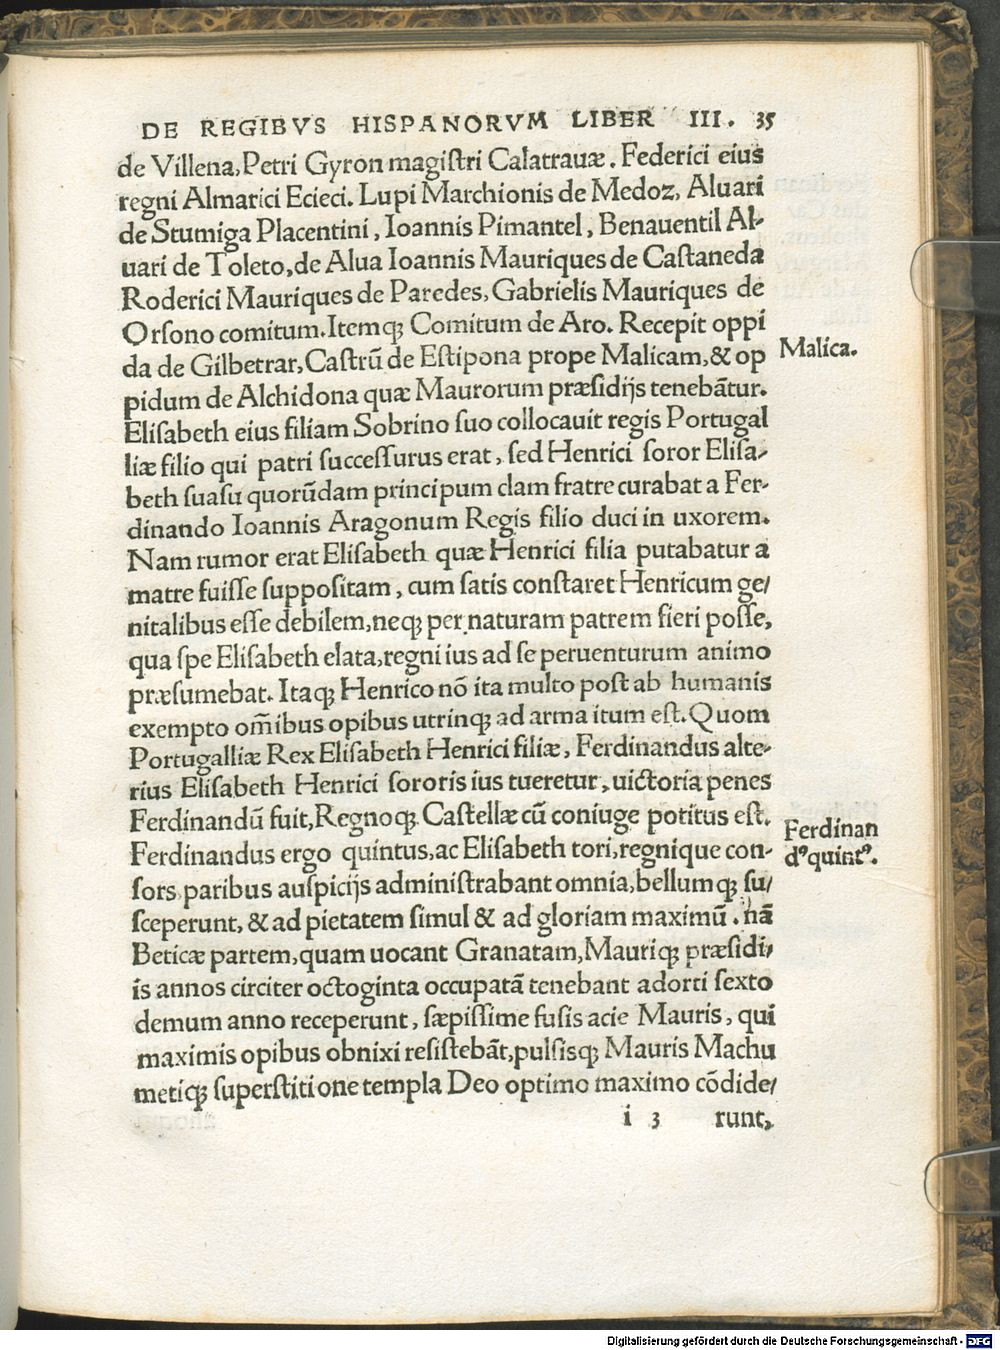 DE REGIBVS HISPANORVM LIBER III. 35
de Villena, Petri Gyron magiſtri Calatrauæ. Federici eius
regni Almarici Ecieci. Lupi Marchionis de Medoz, Aluari
de Stumiga Placentini, Ioannis Pimantel, Benauentil Al-
uari de Toleto, de Alua Ioannis Mauriques de Caſtaneda
Roderici Mauriques de Paredes, Gabrielis Mauriques de
Orſono comitum. Itemqꝫ Comitum de Aro. Recepit oppi
da de Gilbetrar, Caſtrū de Eſtipona prope Malicam, & op
pidum de Alchidona quæ Maurorum præſidijs tenebātur.
Eliſabeth eius filiam Sobrino ſuo collocauit regis Portugal
liæ filio qui patri ſucceſſurus erat, ſed Henrici ſoror Eliſa-
beth ſuaſu quorūdam principum clam fratre curabat a Fer-
dinando Ioannis Aragonum Regis filio duci in uxorem.
Nam rumor erat Eliſabeth quæ Henrici filia putabatur a
matre fuiſſe ſuppoſitam, cum ſatis conſtaret Henricum ge/
nitalibus eſſe debilem, neqꝫ per naturam patrem fieri poſſe,
qua ſpe Eliſabeth elata, regni ius ad ſe peruenturum animo
præſumebat. Itaqꝫ Henrico nō ita multo poſt ab humanis
exempto om̄ibus opibus utrinqꝫ ad arma itum eſt. Quom
Portugalliæ Rex Eliſabeth Henrici filiæ, Ferdinandus alte-
rius Eliſabeth Henrici ſororis ius tueretur, uictoria penes
Ferdinandū fuit, Regnoqꝫ Caſtellæ cū coniuge potitus eſt.
Ferdinandus ergo quintus, ac Eliſabeth tori, regnique con-
ſors, paribus auſpicijs adminiſtrabant omnia, bellumqꝫ ſu/
ſceperunt, & ad pietatem ſimul & ad gloriam maximū. nā
Beticæ partem, quam uocant Granatam, Mauriqꝫ præſidi/
is annos circiter octoginta occupatā tenebant adorti ſexto
demum anno receperunt, ſæpiſſime fuſis acie Mauris, qui
maximis opibus obnixi reſiſtebāt, pulſisqꝫ Mauris Machu
metiqꝫ ſuperſtitione templa Deo optimo maximo cōdide/
i 3 runt,
Malica.
Ferdinan
dꝰ quintꝰ.
Digitalisierung gefördert durch die Deutsche Forschungsgemeinschaft - DFG